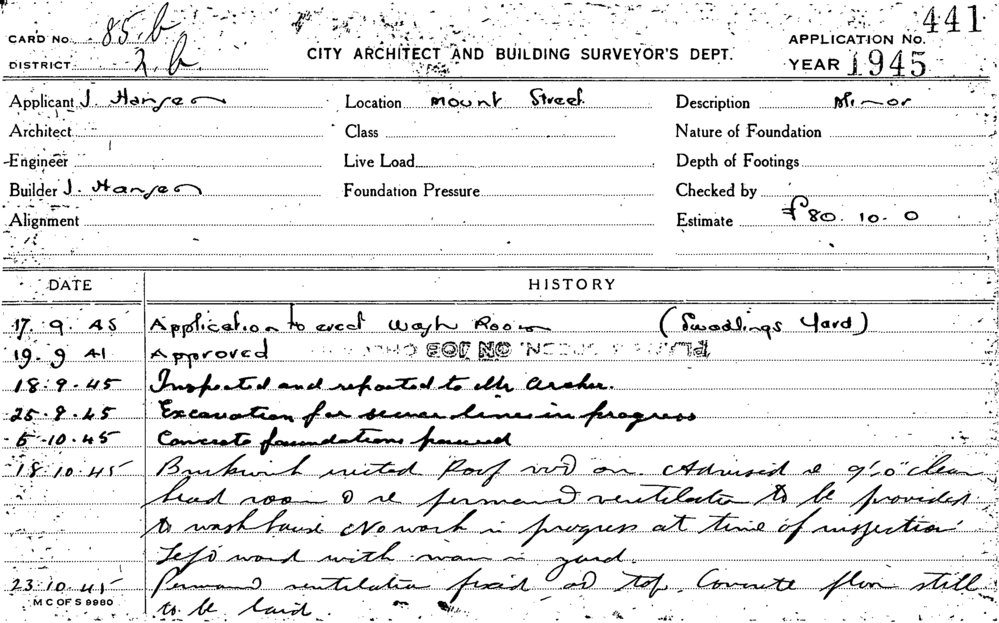 441
CARD No. 85.b
DISTRICT 2.b.
CITY ARCHITECT AND BUILDING SURVEYOR'S DEPT.
APPLICATION No.
YEAR 1945
Applicant J. Hansen Location Mount Street Description Minor
Architect Class Nature of Foundation
Engineer Live Load Depth of Footings
Builder J. Hansen Foundation Pressure Checked by
Alignment Estimate £80.10.0
DATE HISTORY
17.9.45 Application to erect Wash Room (Swadlings Yard)
19.9.41 Approved
18.9.45 Inspected and reported to Mr Archer.
25.9.45 Excavation for sewer lines in progress
5.10.45 Concrete foundations poured
18.10.45 Brickwork erected Roof on. Advised re 9'0" clear
head room & re permand ventilation to be provided
to wash house No work in progress at time of inspection
Left word with man in yard.
23.10.45 Permand ventilation fixed at top. Concrete floor still
M C OF S 9980
to be laid.